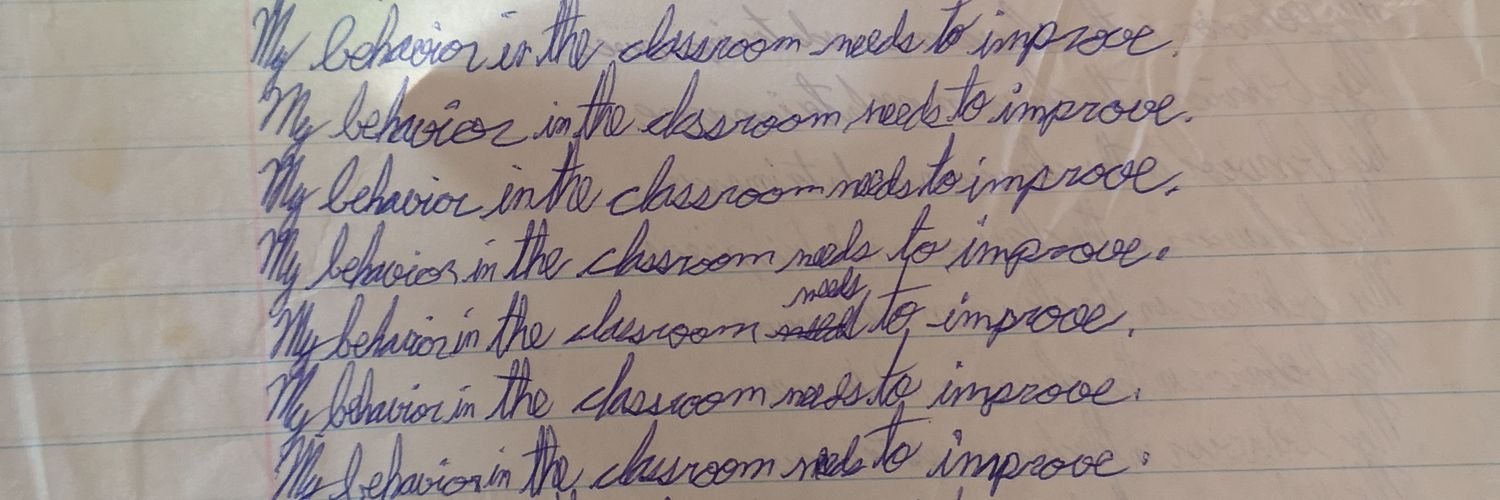 My behavior in the classroom needs to improve.
My behavior in the classroom needs to improve.
My behavior in the classroom needs to improve.
My behavior in the classroom needs to improve.
needs
My behavior in the classroom need to improve.
My behavior in the classroom needs to improve.
My behavior in the classroom needs to improve.